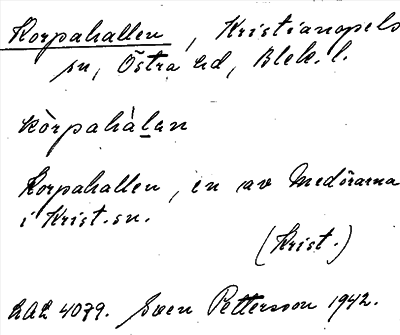 Korpahallen, Kristianopels
sn, Östra hd, Blek. l.
kòrpahàlan
Korpahallen, en av Medörarna
i Krist. sn.
(Krist.)
LAL 4079. Sven Pettersson 1942.